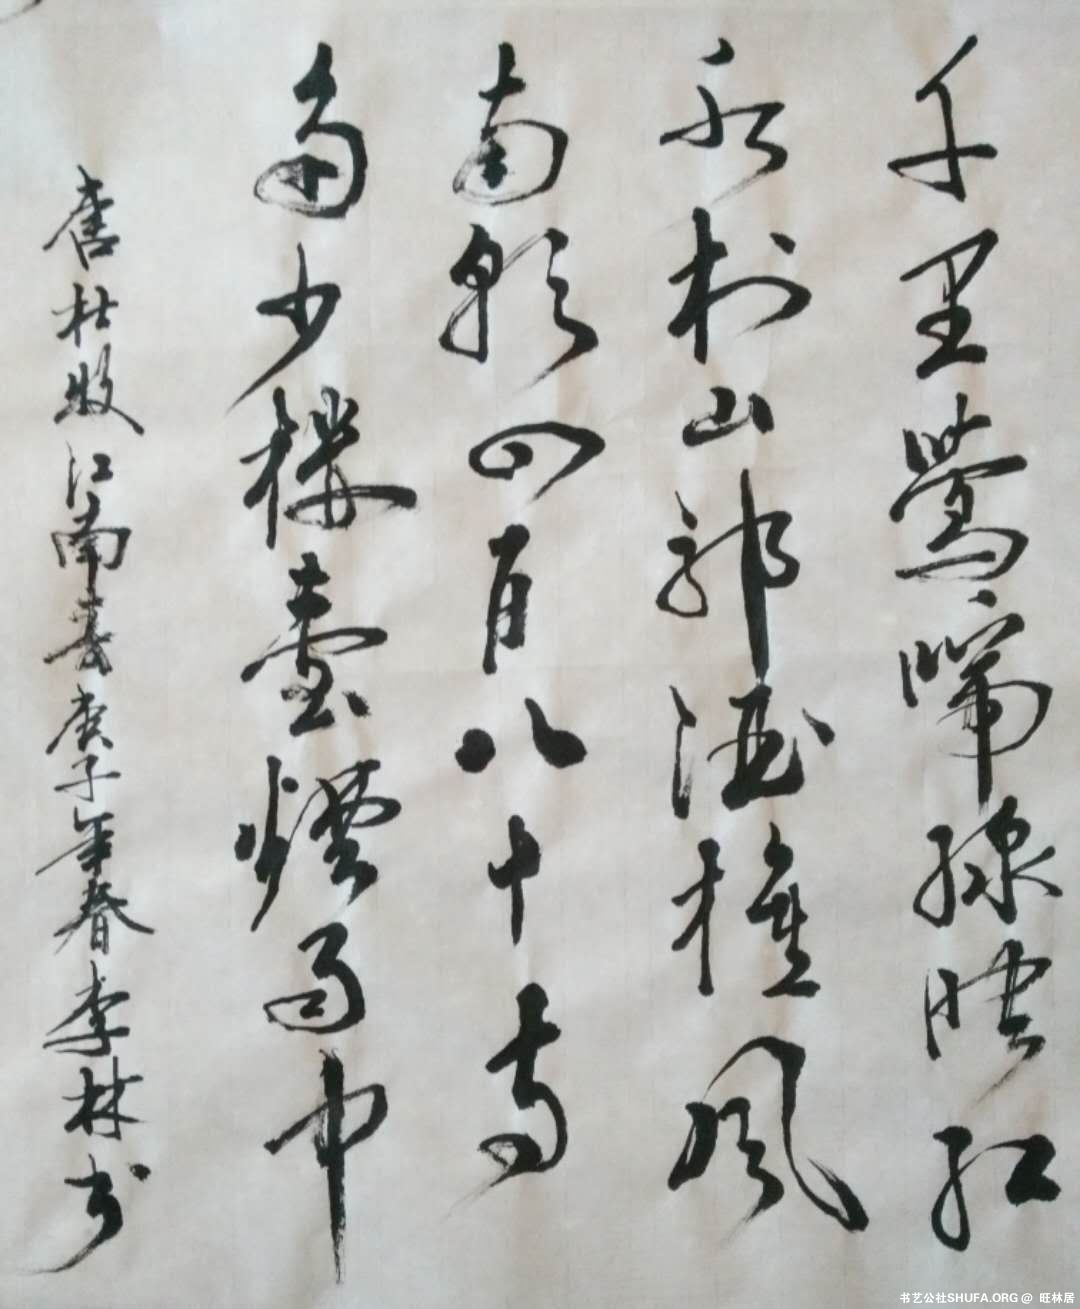 千里鶯啼綠映紅
水村山郭酒旗风
南朝四百八十寺
多少樓臺煙雨中
唐杜牧江南春庚子年春李林书
书艺公社SHUFA.ORG @ 旺林居